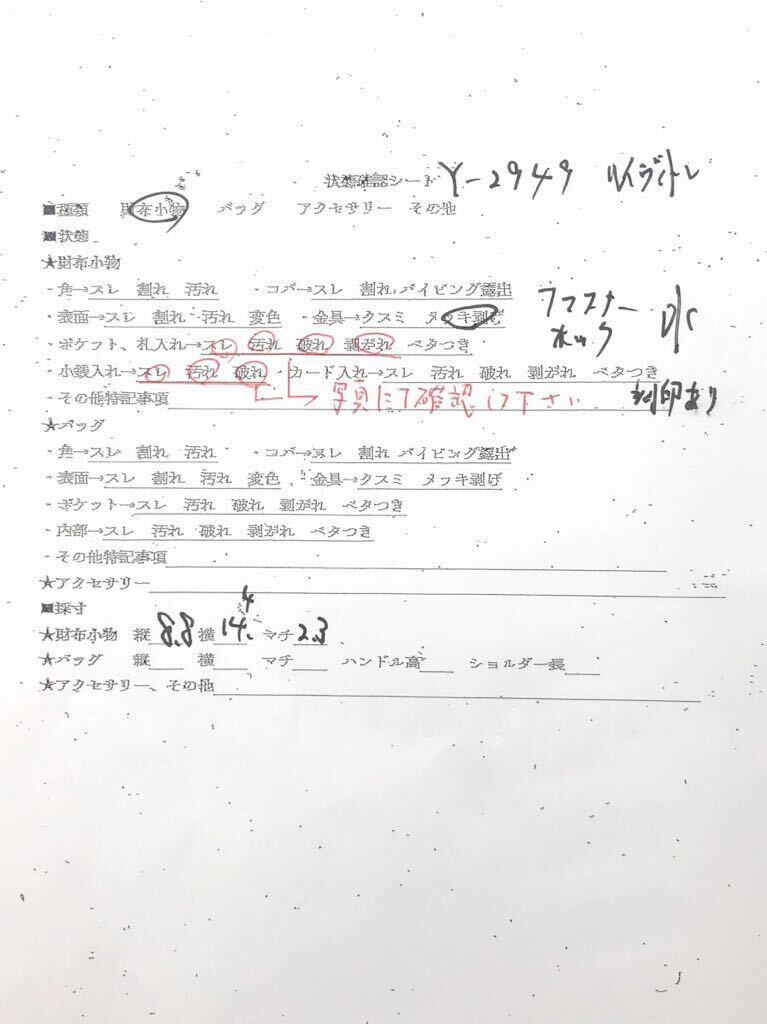 状態確認シート Y-2949 ルイヴィトン
■種類 財布小物 バッグ アクセサリー その他
■状態
★財布小物
・角→スレ 割れ 汚れ ・コバ→スレ 割れ パイピング露出
・表面→スレ 割れ 汚れ 変色 ・金具→クスミ メッキ剥げ ファスナー ホック
・ポケット、札入れ→スレ 汚れ 破れ 剥がれ ベタつき
・小銭入れ→スレ 汚れ 破れ ・カード入れ→スレ 汚れ 破れ 剥がれ ベタつき
・その他特記事項 写真にて確認して下さい 刻印あり
★バッグ
・角→スレ 割れ 汚れ ・コバ→スレ 割れ パイピング露出
・表面→スレ 割れ 汚れ 変色 ・金具→クスミ メッキ剥げ
・ポケット→スレ 汚れ 破れ 剥がれ ベタつき
・内部→スレ 汚れ 破れ 剥がれ ベタつき
・その他特記事項
★アクセサリー
■採寸
★財布小物 縦8.8 横14.4 マチ2.3
★バッグ 縦 横 マチ ハンドル高 ショルダー長
★アクセサリー、その他